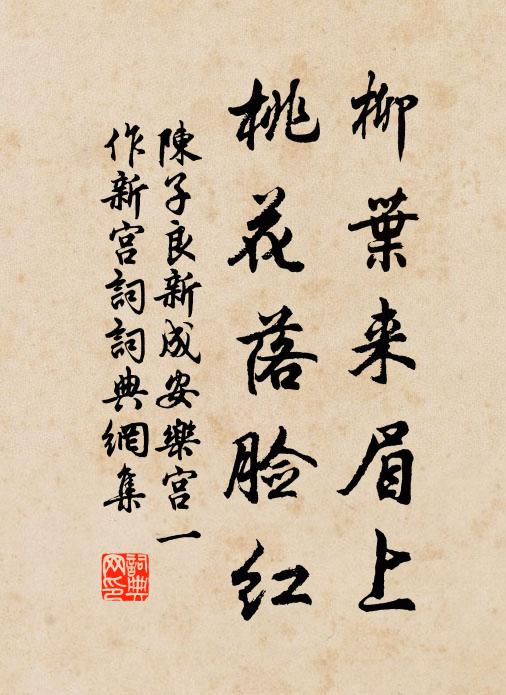 柳葉来眉上
桃花落脸红
陳子良新成安樂宫一
作新宫詞詞典網集
詞典
网印